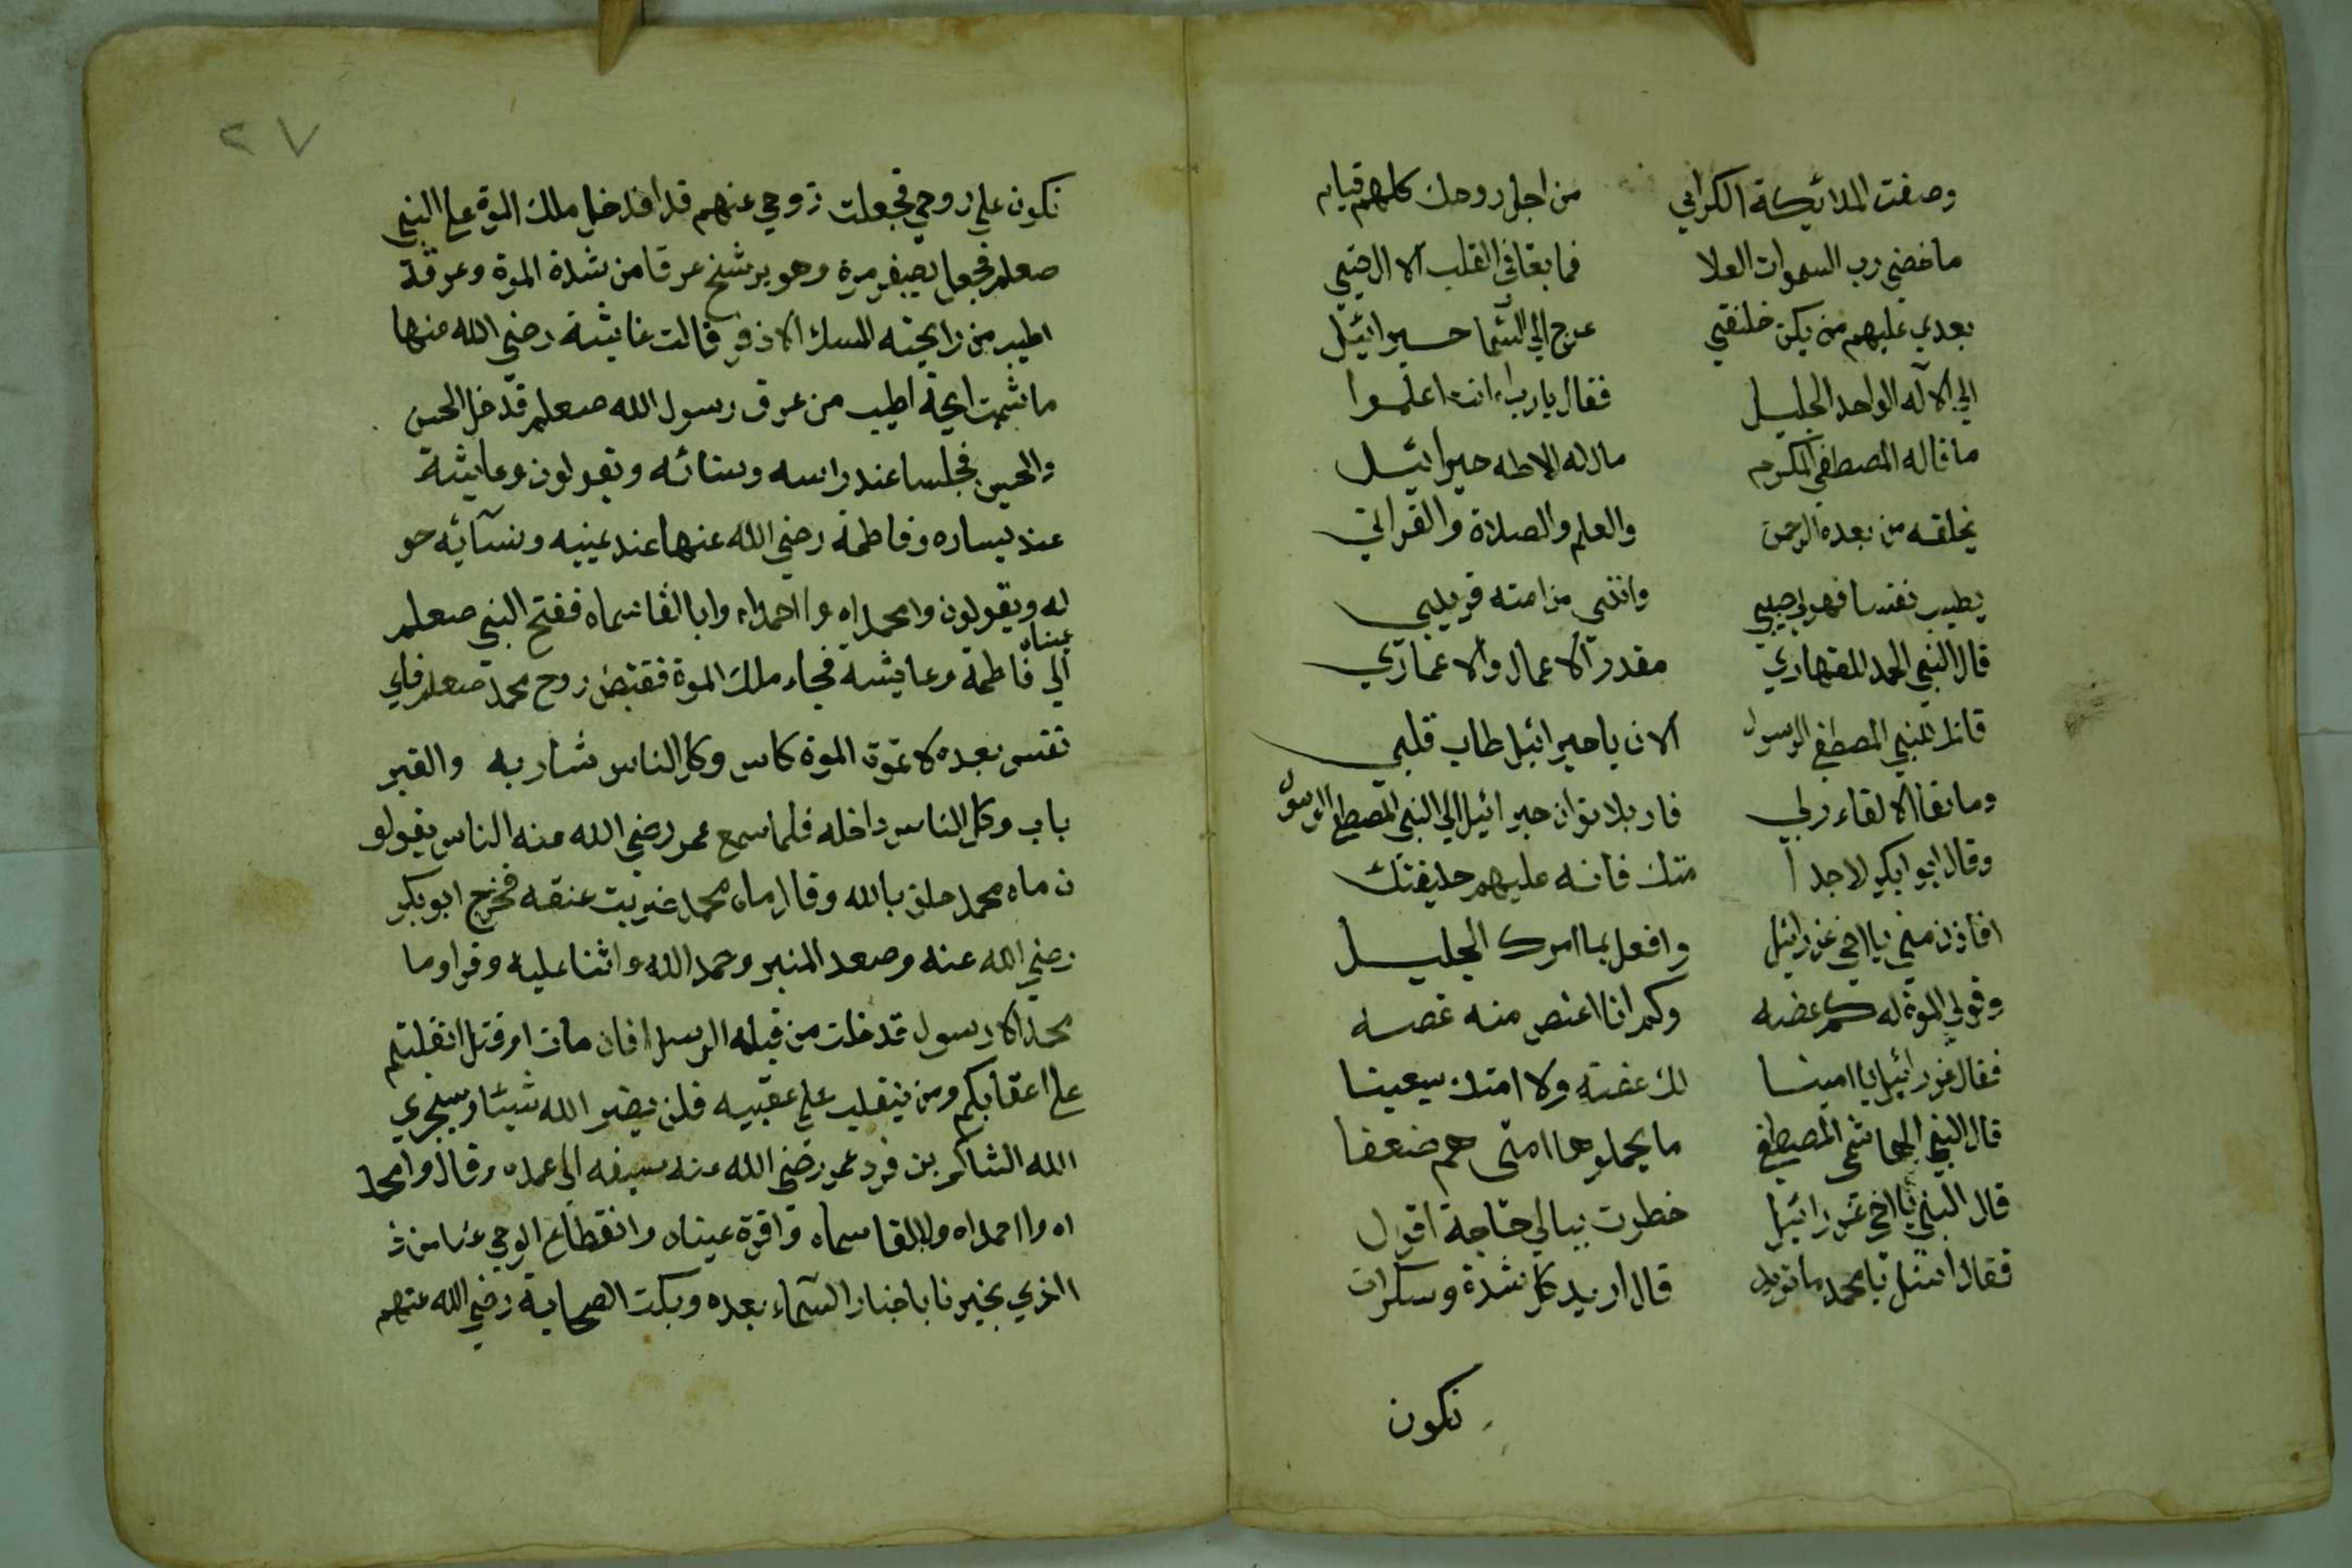 وصفت الملائكة الكرامي من اجل روحك كلهم قيام
ما خصني رب السموات العلا فما بقا في القلب الا الرضي
بعدي عليهم من يكن خلفتي عرج الي السما جبرائيل
الي الآله الواحد الجليل فقال يارب انت اعلموا
ما قاله المصطفي المكرم ما اله الا طه جبرائيل
يخلقه من بعده الرحمن والعلم والصلاة والقراني
يطيب نفسا فهو لي حبيبي وانني من امته قريبي
قال النبي الحمد للقهاري مقدر الاعمال والاعماري
قاتل للنبي المصطفي الرسول الان يا جبرائيل طاب قلبي
وما بقا الا لقاء ربي فاد بلا توان جبرائيل الي النبي المصطفي الرسول
وقال ابو ابكر لاجدا متك فانه عليهم خليفتك
افاذن مني يا اخي عزرائيل وافعل بما امرك الجليل
وقولي الموة له كم غصه وكم انا اغتص منه غصه
فقال عزرائيل يا امينا لك غصته ولا امتك سيعينا
قال النبي الهاشمي المصطفي ما يحملوها امتي هم ضعفا
قال النبي يا اخي عزرائيل خطرت ببالي حاجة اقول
فقال اسئل يا محمد ما تريد قال اريد كل شدة وسكرات
تكون
٢٧
تكون علي روحي فجعلت زوحي عنهم فدا فدخل ملك الموة علي النبي
صعلم فجعل يصيفر مرة وهو يرشخ عرقا من شدة الموة وعرقة
اطيب من رايحته المسك الاذفر قالت عايشة رضي الله عنها
ما شمت ايحة اطيب من عرق رسول الله صعلم قدخل الحسن
والحسن فجلسا عند راسه وستائه وتقولون وعايشة
عند يساره وفاطمة رضي الله عنها عند عينيه ونسآئه حو
له ويقولون وامحمداه وااحمداه وابا القاسماه ففتح النبي صعلم
عيناه
الي فاطمة وعايشة فجاء ملك الموة فقبض روح محمد صعلم فاي
نفس بعده لا تموة الموة كاس وكل الناس شاربه والقبر
باب وكل الناس داخله فلما سمع عمر رضي الله عنه الناس يقولو
ن ماة محمد حلف بالله وقال ماة محمد ضربت عنقه فخرج ابو بكر
رضي الله عنه وصعد المنبر وحمد الله واثنا عليه وقرا وما
محمد الا رسول قد خلت من قبله الرسل افان مات او قتل انقلبتم
علي اعقابكم ومن ينقلب علي عقبيه فلن يضر الله شيئا وسيجزي
الله الشاكرين فرد عمر رضي الله عنه سيفه الي غمده وقال وامحمد
اه وااحمداه واباالقاسماه واقرة عيناه وانقطاع الوحي عنا من ذ
االذي يخبرنا باخبار السمآء بعده وبكت الصحابة رضي الله عنهم